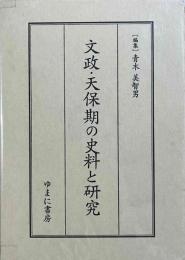 ［編集］青木 美智男
文政・天保期の史料と研究
ゆまに書房